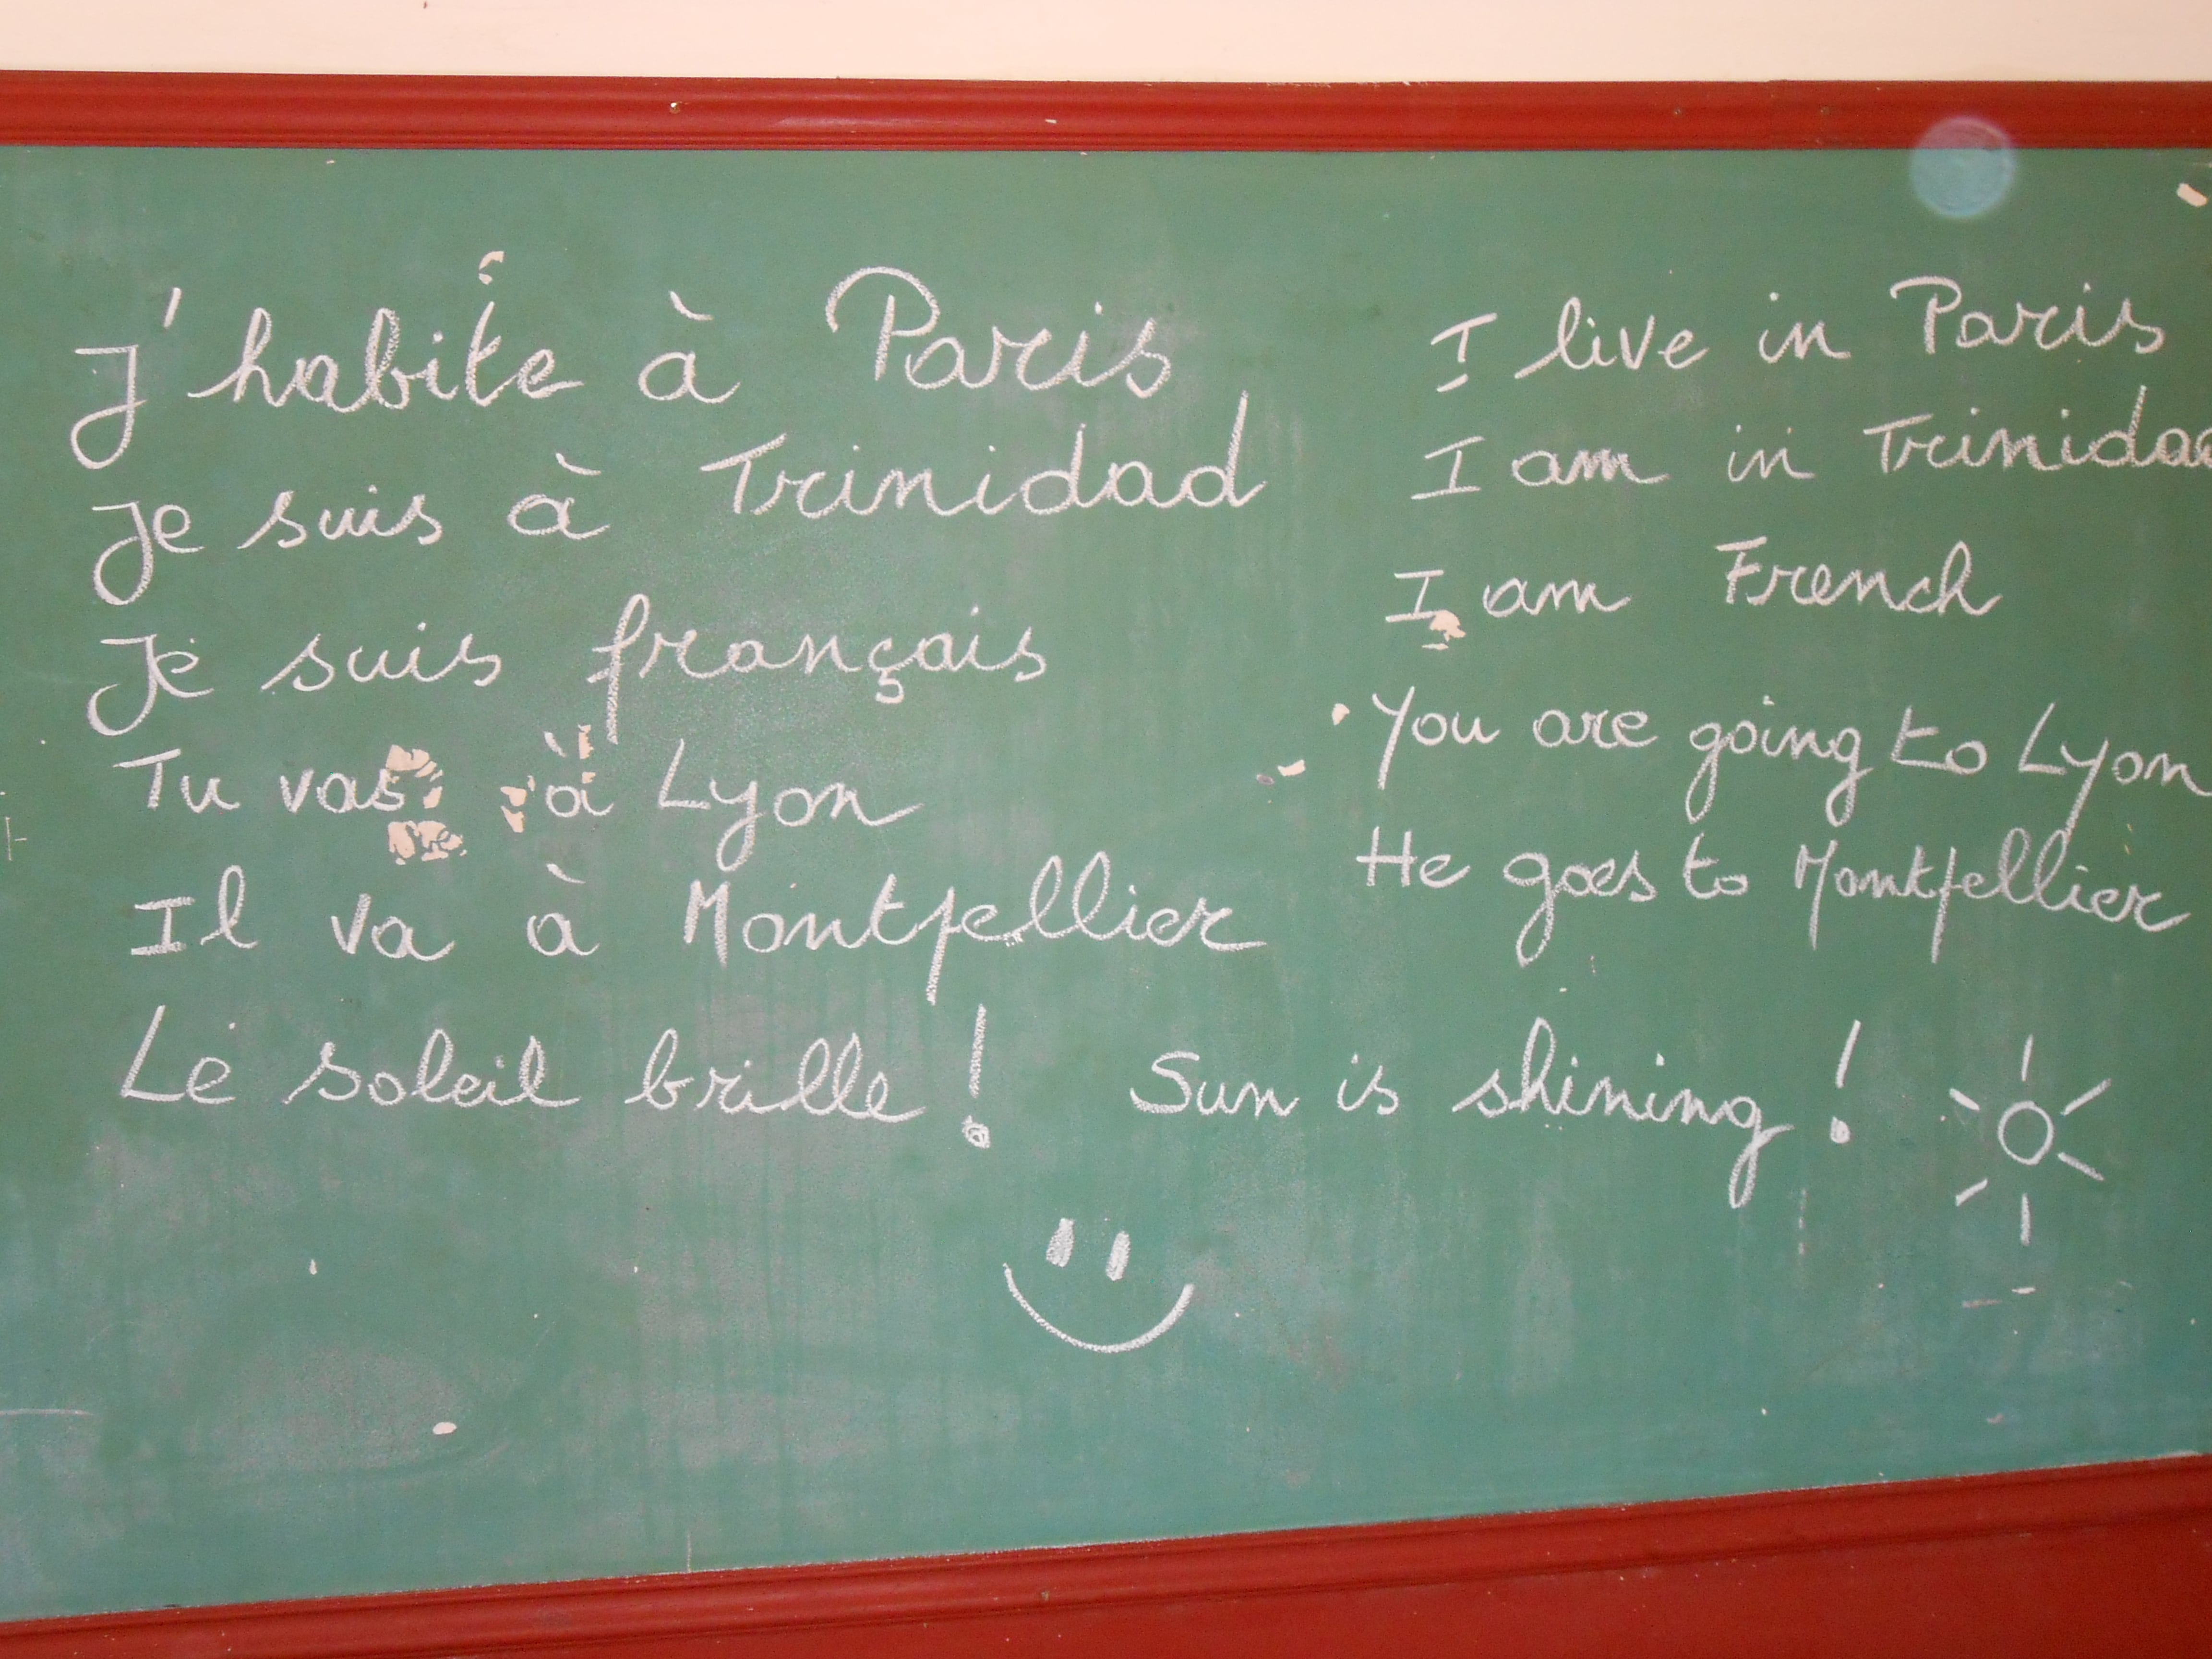 J'habite à Paris
Je suis à Trinidad
Je suis français
Tu vas à Lyon
Il va à Montpellier
Le soleil brille !
I live in Paris
I am in Trinidad
I am French
You are going to Lyon
He goes to Montpellier
Sun is shining !